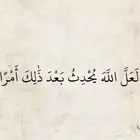 لَعَلَّ اللَّهَ يُحْدِثُ بَعْدَ ذَٰلِكَ أَمْرًا